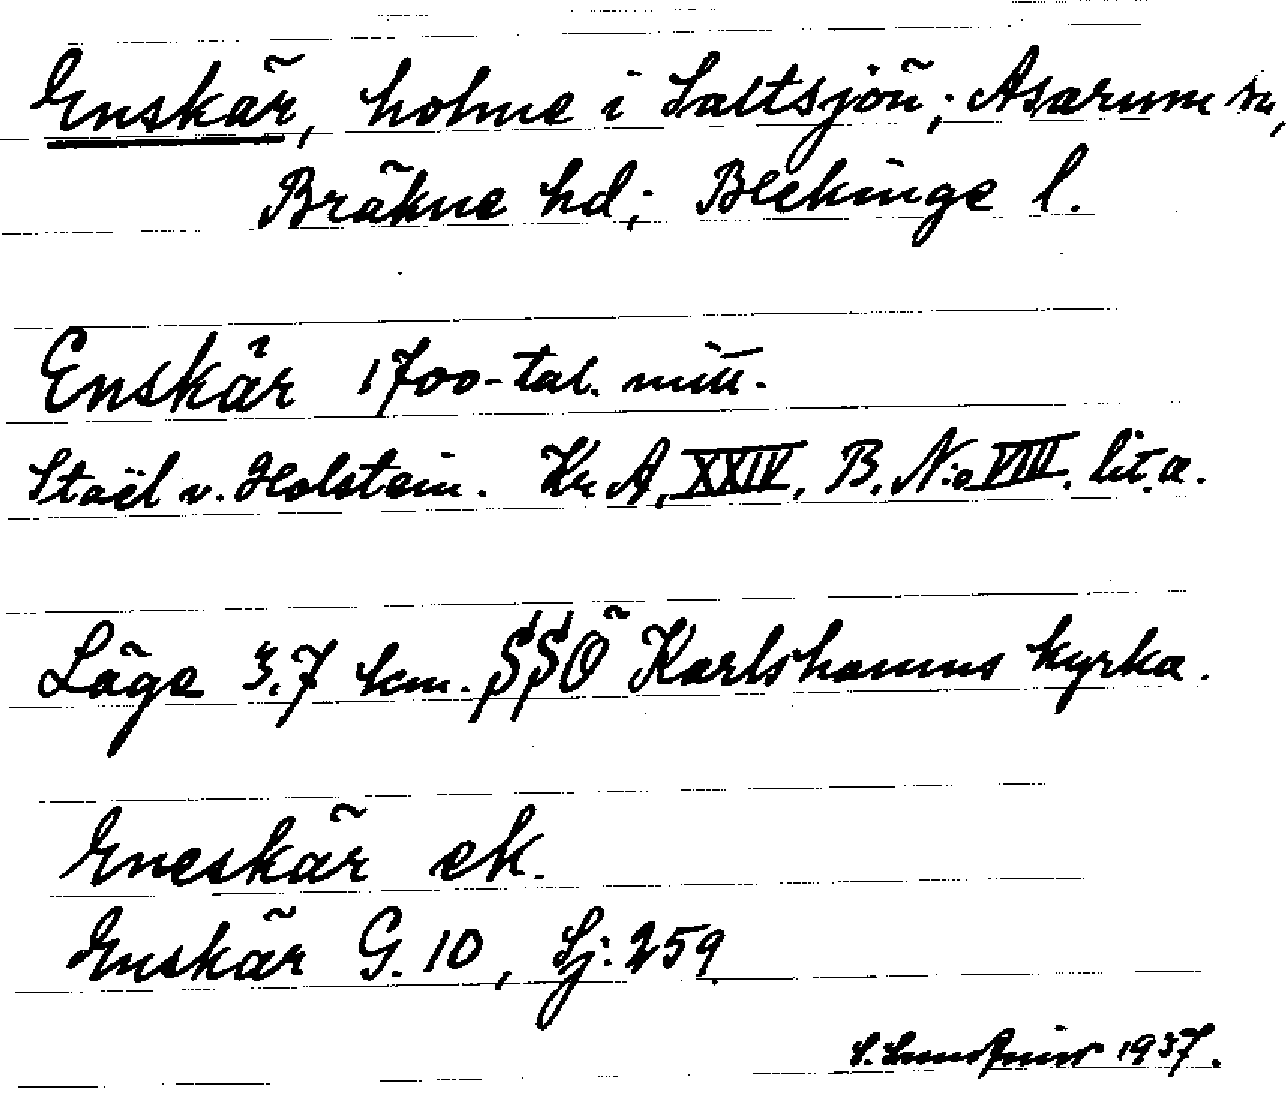 Enskär, holme i Saltsjön; Asarum sn,
Bräkne hd; Blekinge l.
Enskär 1700-tal. mitt.
Staël v. Holstein. Kr. A. XXIV, B. N:o VIII. lit. a.
Läge 3.7 km. SSÖ Karlshamns kyrka.
Eneskär ek.
Enskär G. 10, Sj: 259
1937.